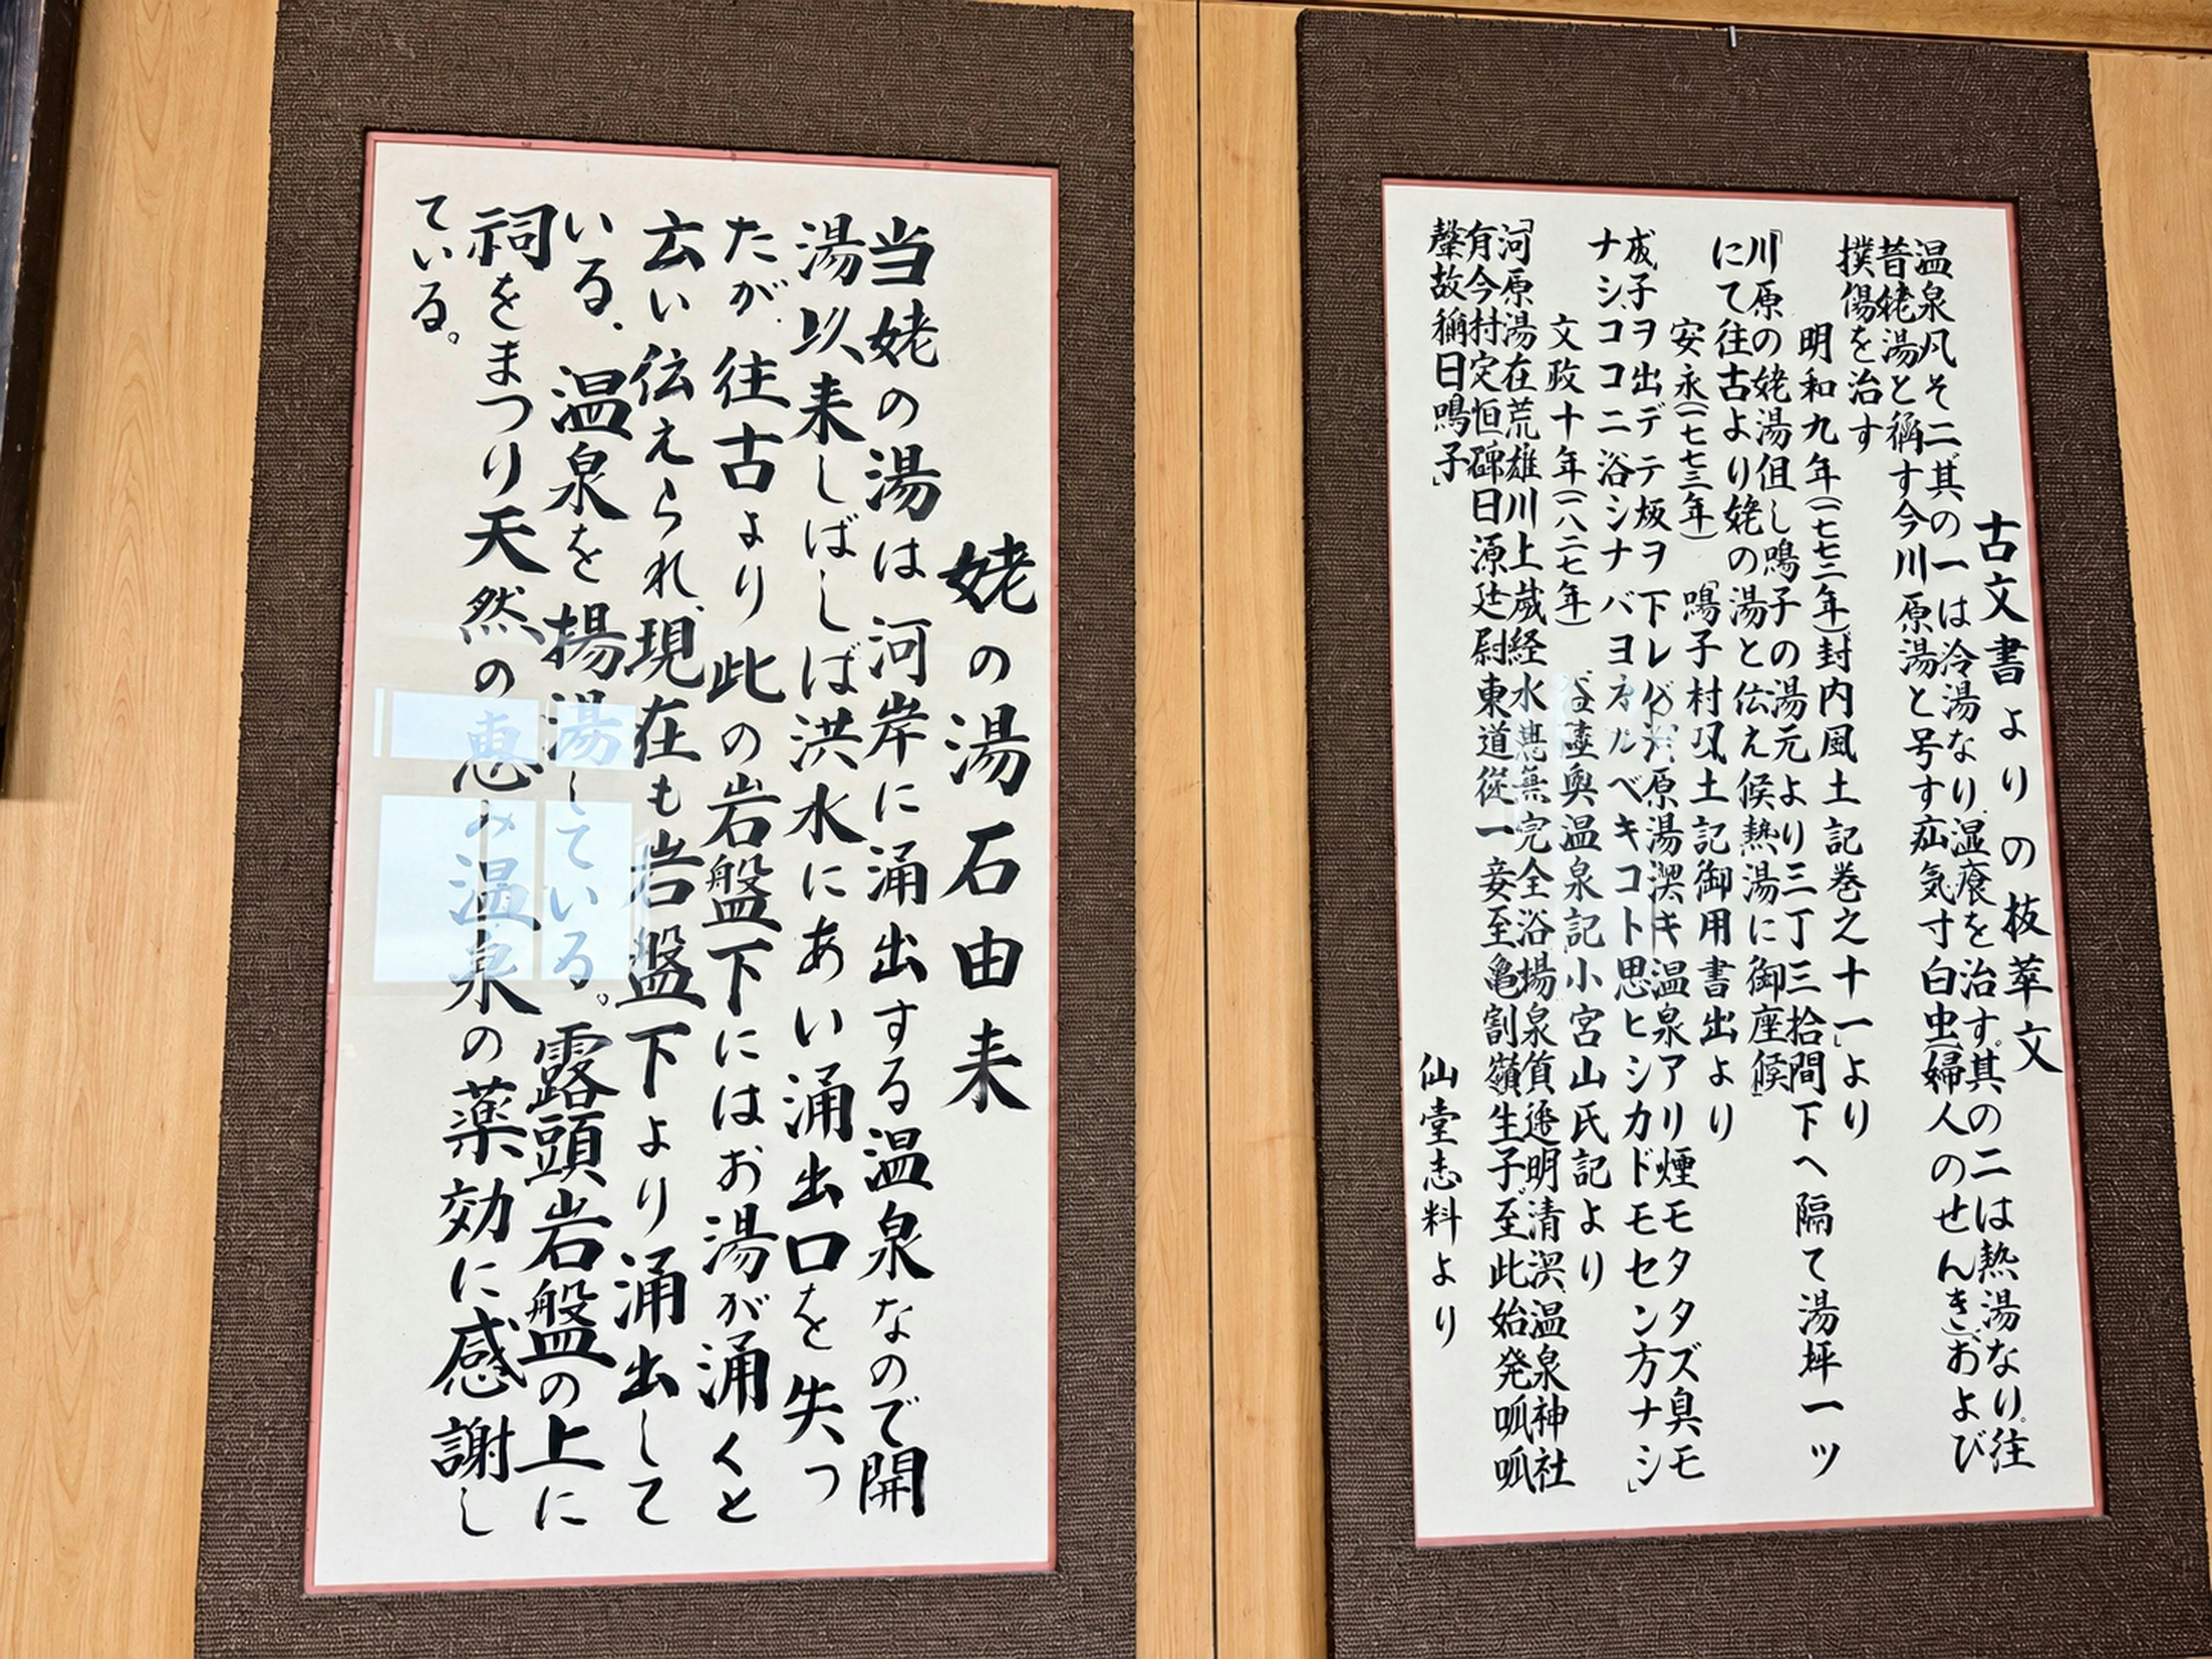 古文書よりの抜萃文
温泉凡そ二其の一は冷湯なり湿癢を治す。其の二は熱湯なり。往
昔姥湯と稱す今川原湯と号す疝気寸白虫(婦人のせんき)および
撲傷を治す
明和九年(一七七二年)封内風土記巻之十一」より
「川原の姥湯但し鳴子の湯元より三丁三拾間下へ隔て湯坪一ツ
にて往古より姥の湯と伝え候熱湯に御座候」
安永(一七七三年)「鳴子村風土記御用書出より
成子ヲ出デテ坂ヲ下レバ 原湯渓キ温泉アリ煙モタタズ臭モ
ナシココニ浴シナバヨオルベキコト思ヒシカドモセン方ナシ」
文政十年(一八二七年) 陸奥温泉記小宮山氏記より
「河原湯在荒雄川上歳経水 無完全浴場泉質 明清 温泉神社
有今村定恒碑曰源廷尉東道従一妾至亀割嶺生子至此始発呱呱
聲故稱曰鳴子」
仙堂志料より
姥の湯石由来
当姥の湯は河岸に涌出する温泉なので開
湯以来しばしば洪水にあい涌出口を失っ
たが、往古より此の岩盤下にはお湯が涌くと
云い伝えられ、現在も岩盤下より涌出して
いる、温泉を揚湯している。露頭岩盤の上に
祠をまつり天然の恵み温泉の薬効に感謝し
ている。